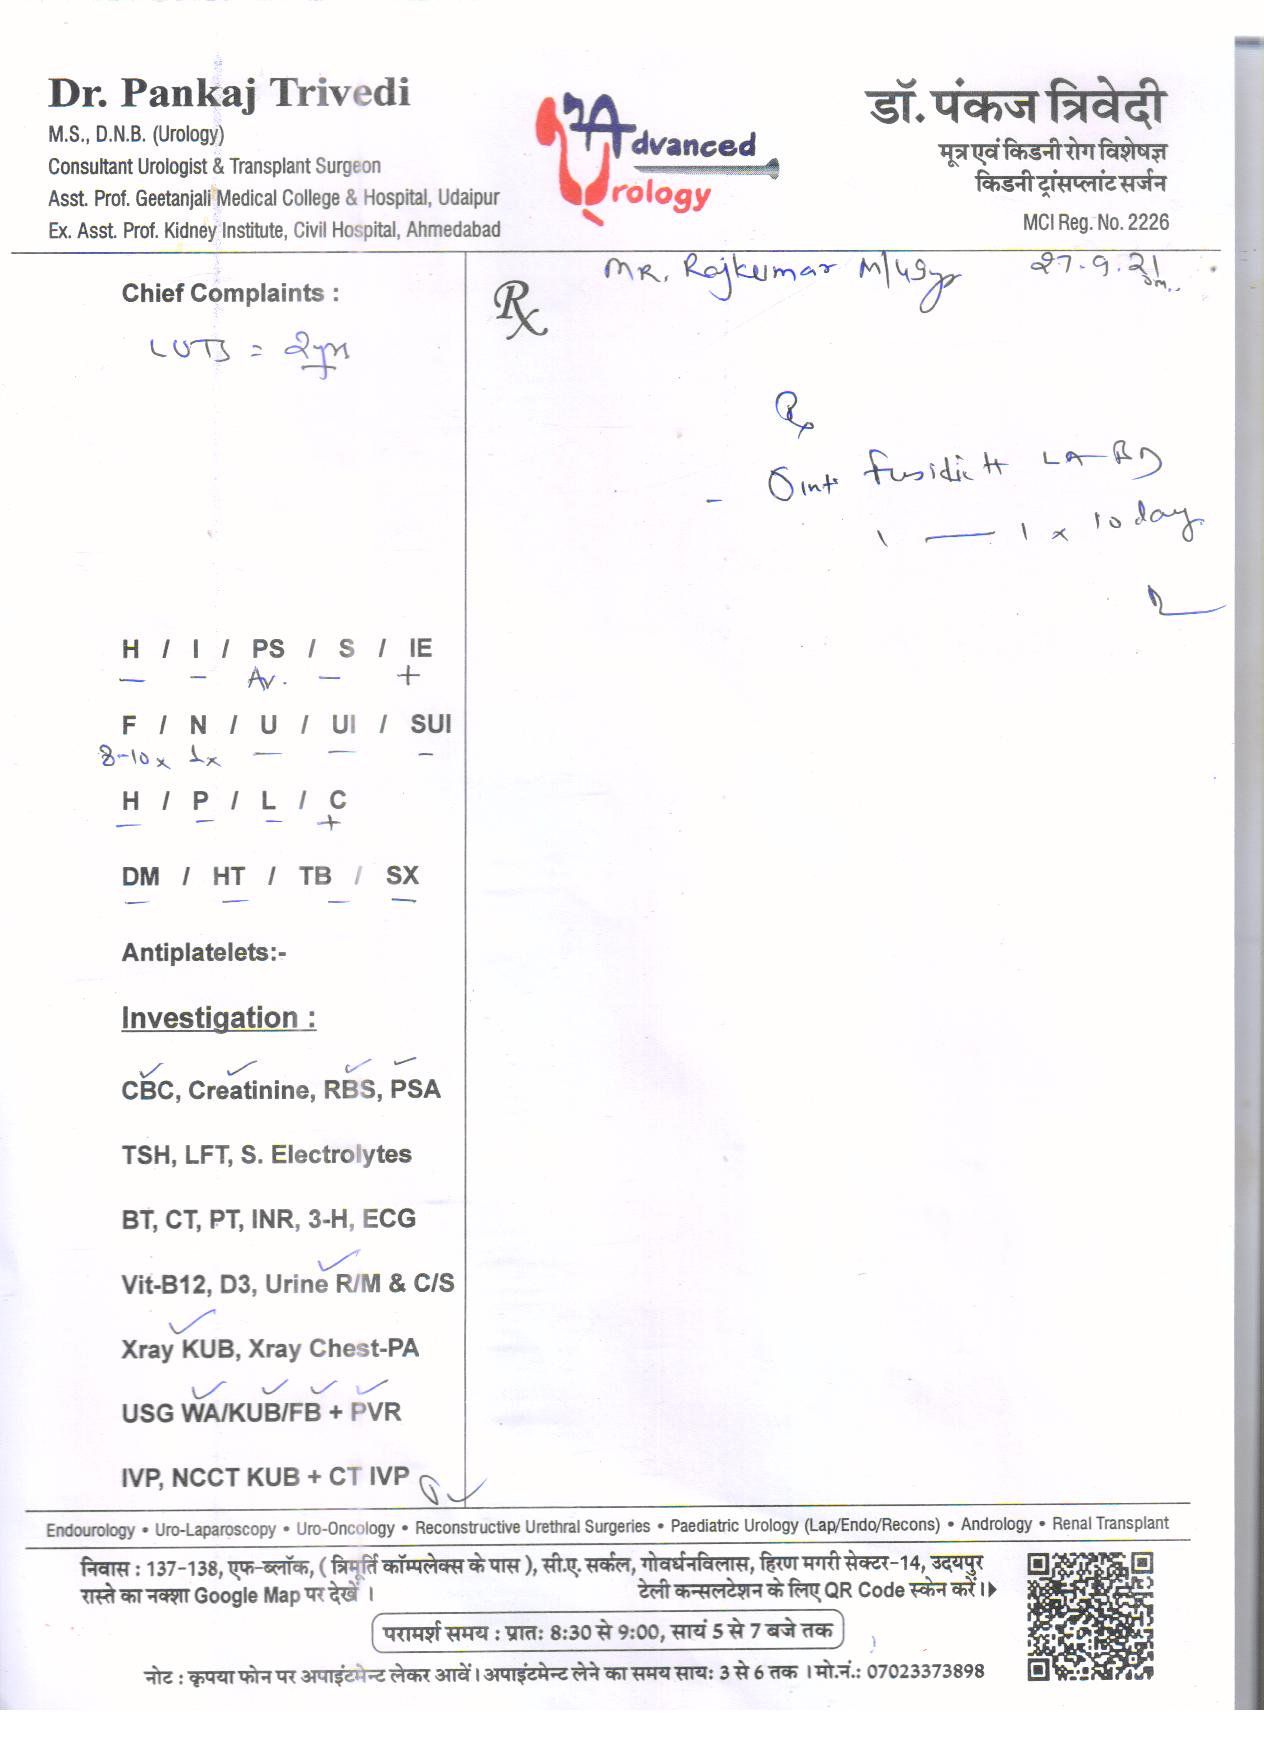 Dr. Pankaj Trivedi
M.S., D.N.B. (Urology)
Consultant Urologist & Transplant Surgeon
Asst. Prof. Geetanjali Medical College & Hospital, Udaipur
Ex. Asst. Prof. Kidney Institute, Civil Hospital, Ahmedabad
Advanced
Urology
डॉ. पंकज त्रिवेदी
मूत्र एवं किडनी रोग विशेषज्ञ
किडनी ट्रांसप्लांट सर्जन
MCI Reg. No. 2226
MR. Rajkumar M/49y 27.9.21
Chief Complaints :
LUTS = 2yr
Rx
Rx
- Oint Fusidic H LA-BD
1 — 1 x 10 day
H / I / PS / S / IE
— – Av. — +
F / N / U / UI / SUI
8-10x 1x — — –
H / P / L / C
— – – +
DM / HT / TB / SX
— — — —
Antiplatelets:-
Investigation :
CBC, Creatinine, RBS, PSA
TSH, LFT, S. Electrolytes
BT, CT, PT, INR, 3-H, ECG
Vit-B12, D3, Urine R/M & C/S
Xray KUB, Xray Chest-PA
USG WA/KUB/FB + PVR
IVP, NCCT KUB + CT IVP
Endourology • Uro-Laparoscopy • Uro-Oncology • Reconstructive Urethral Surgeries • Paediatric Urology (Lap/Endo/Recons) • Andrology • Renal Transplant
निवास : 137-138, एफ-ब्लॉक, ( त्रिमूर्ति कॉम्पलेक्स के पास ), सी.ए. सर्कल, गोवर्धनविलास, हिरण मगरी सेक्टर-14, उदयपुर
रास्ते का नक्शा Google Map पर देखें । टेली कन्सलटेशन के लिए QR Code स्केन करें।
परामर्श समय : प्रातः 8:30 से 9:00, सायं 5 से 7 बजे तक
नोट : कृपया फोन पर अपाइंटमेन्ट लेकर आवें। अपाइंटमेन्ट लेने का समय सायः 3 से 6 तक । मो.नं.: 07023373898